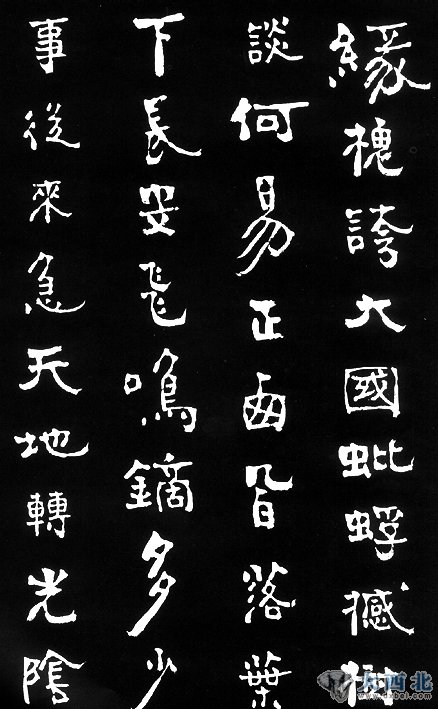 緣槐誇大國蚍蜉撼樹
談何易正西風落葉
下長安飛鳴鏑多少
事從來急天地轉光陰
大西北
www.dxbei.com